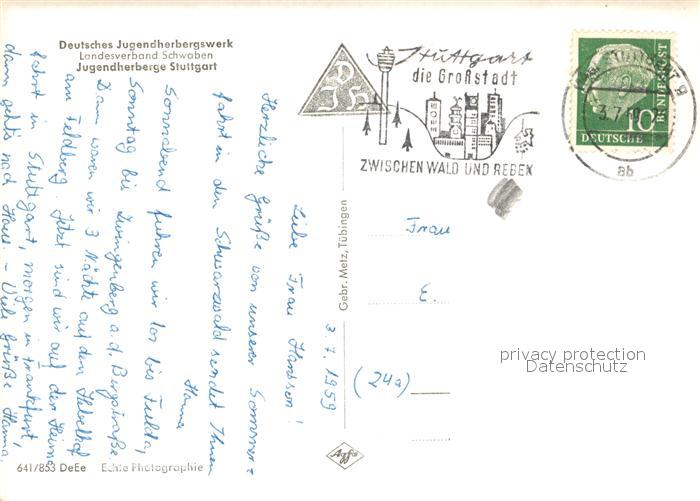 Deutsches Jugendherbergswerk
Landesverband Schwaben
Jugendherberge Stuttgart
DJH
Stuttgart
die Großstadt
ZWISCHEN WALD UND REBEN
10
BUNDESPOST
DEUTSCHE
3.7.
ab
Gebr. Metz, Tübingen
Frau
E.
(24a)
privacy protection
Datenschutz
3.7.1959
Liebe Frau Hansen!
Herzliche Grüße von unserer Sommer-
fahrt in den Schwarzwald sendet Ihnen
Hanna
Sonnabend fuhren wir los bis Fulda,
Sonntag bis Zwingenberg a.d. Bergstraße.
Dann waren wir 3 Nächte auf den Hebelhof
am Feldberg. Jetzt sind wir auf der Heim-
fahrt in Stuttgart, morgen in Frankfurt,
dann gehts nach Haus. - Viele Grüße Hanna.
641/853 DeEe Echte Photographie
Agfa